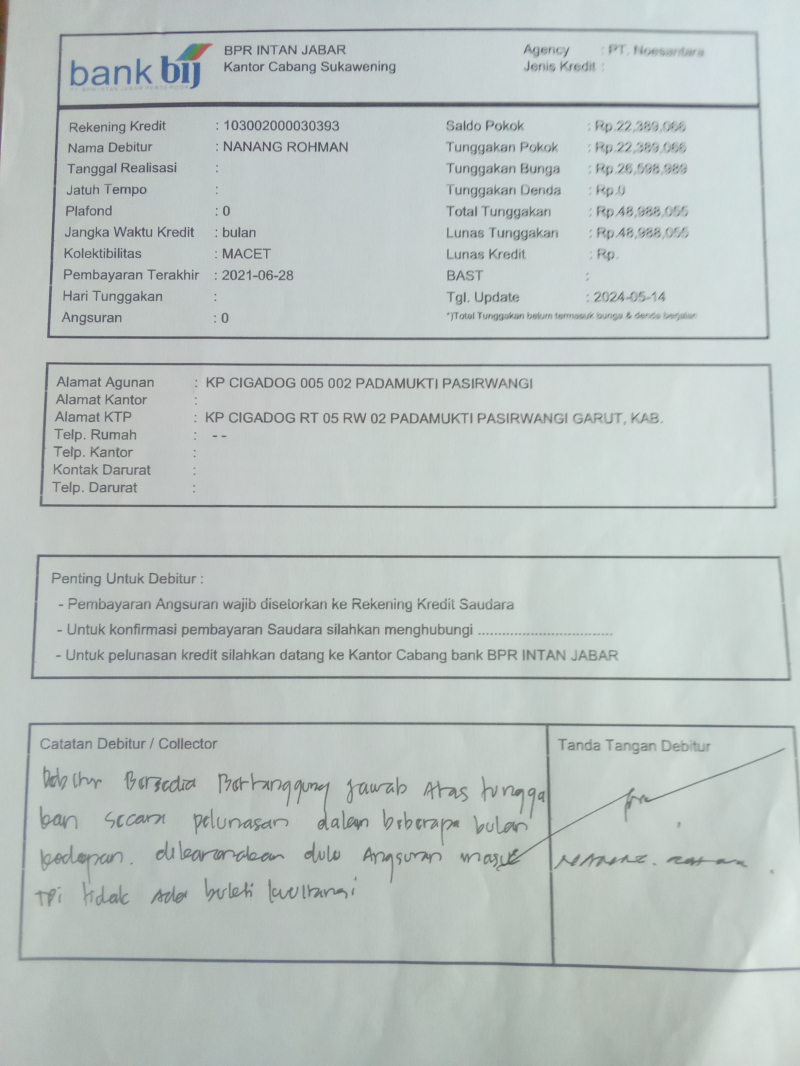 bank bij
BPR INTAN JABAR
Kantor Cabang Sukawening
Agency : PT. Noesantara
Jenis Kredit :
Rekening Kredit : 103002000030393
Nama Debitur : NANANG ROHMAN
Tanggal Realisasi :
Jatuh Tempo :
Plafond : 0
Jangka Waktu Kredit : bulan
Kolektibilitas : MACET
Pembayaran Terakhir : 2021-06-28
Hari Tunggakan :
Angsuran : 0
Saldo Pokok : Rp.22,389,066
Tunggakan Pokok : Rp.22,389,066
Tunggakan Bunga : Rp.26,598,989
Tunggakan Denda : Rp.0
Total Tunggakan : Rp.48,988,055
Lunas Tunggakan : Rp.48,988,055
Lunas Kredit : Rp.
BAST :
Tgl. Update : 2024-05-14
*)Total Tunggakan belum termasuk bunga & denda berjalan
Alamat Agunan : KP CIGADOG 005 002 PADAMUKTI PASIRWANGI
Alamat Kantor :
Alamat KTP : KP CIGADOG RT 05 RW 02 PADAMUKTI PASIRWANGI GARUT, KAB.
Telp. Rumah : - -
Telp. Kantor :
Kontak Darurat :
Telp. Darurat :
Penting Untuk Debitur :
- Pembayaran Angsuran wajib disetorkan ke Rekening Kredit Saudara
- Untuk konfirmasi pembayaran Saudara silahkan menghubungi ..................................
- Untuk pelunasan kredit silahkan datang ke Kantor Cabang bank BPR INTAN JABAR
Catatan Debitur / Collector
Debitur Bersedia Bertanggung jawab Atas tungga
kan secara pelunasan dalam beberapa bulan
kedepan. dikarenakan dulu Angsuran masuk
TPi tidak Ada bukti kwitansi
Tanda Tangan Debitur